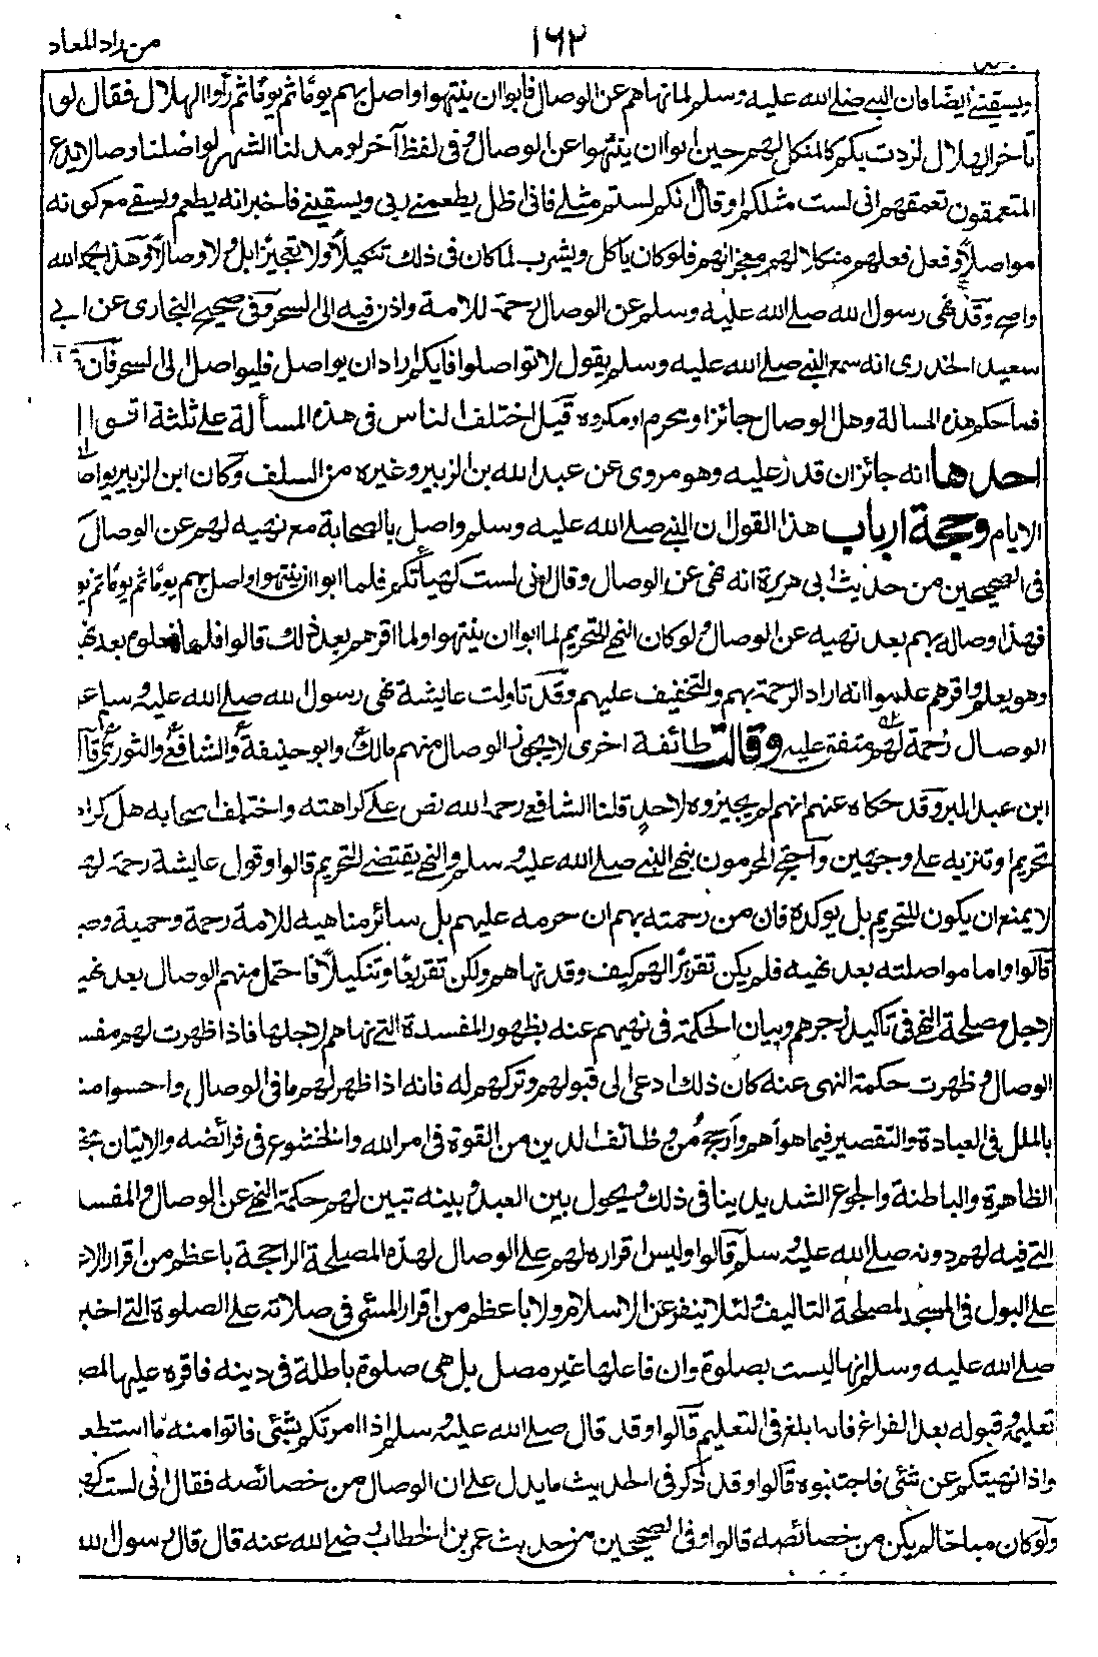 من زاد المعاد
١٦٢
ويسقيني أيضا فان النبي صلى الله عليه وسلم لما نهاهم عن الوصال فابوا ان ينتهوا واصل بهم يومًا ثم يومًا ثم رأوا الهلال فقال لو
تأخر الهلال لزدتكم كالمنكل لهم حين ابوا ان ينتهوا عن الوصال وفى لفظ آخر لو مد لنا الشهر لواصلنا وصالا يدع
المتعمقون تعمقهم انى لست مثلكم او قال انكم لستم مثلى فانى اظل يطعمنى ربى ويسقينى فاخبر انه يطعم ويسقى مع كونه
مواصلاً وفعل فعلهم منكلا لهم معجزا لهم فلو كان ياكل ويشرب لما كان فى ذلك تنكيلاً ولا تعجيزا بل ولا وصالاً وهذا بحمد الله
واضح وقد نهى رسول الله صلى الله عليه وسلم عن الوصال رحمة للامة واذن فيه الى السحر وفى صحيح البخارى عن ابى
سعيد الخدرى انه سمع النبى صلى الله عليه وسلم يقول لا تواصلوا فايكم اراد ان يواصل فليواصل الى السحر فان
فما حكم هذه المسالة وهل الوصال جائز او محرم او مكروه قيل اختلف الناس فى هذه المسألة على ثلثة اقوال
احدها انه جائز ان قدر عليه وهو مروى عن عبد الله بن الزبير وغيره من السلف وكان ابن الزبير يواصل
الايام وحجة ارباب هذا القول ان النبى صلى الله عليه وسلم واصل بالصحابة مع نهيه لهم عن الوصال
فى الصحيحين من حديث ابى هريرة انه نهى عن الوصال وقال انى لست كهيأتكم فلما ابوا ان ينتهوا واصل بهم يومًا ثم يومًا ثم يو
فهذا وصاله بهم بعد نهيه عن الوصال ولو كان النهى للتحريم لما ابوا ان ينتهوا ولما اقرهم بعد ذلك قالوا فلما فعلوه بعد نهي
وهو يعلم واقرهم علموا انه اراد الرحمة بهم والتخفيف عليهم وقد تاولت عايشة نهى رسول الله صلى الله عليه وسلم عن
الوصال رحمة لهم متفق عليه وقالت طائفة اخرى لا يجوز الوصال منهم مالك وابو حنيفة والشافعى والثورى قال
ابن عبد البر وقد حكاه عنهم انهم لم يجيزوه لاحدٍ قلنا الشافعى رحمه الله نص على كراهته واختلف اصحابه هل كراهة
تحريم او تنزيه على وجهين واحتج المحرمون بنهى النبى صلى الله عليه وسلم والنهى يقتضى التحريم قالوا وقول عايشة رحمة لهم
لا يمنع ان يكون للتحريم بل يوكده فان من رحمته بهم ان حرمه عليهم بل سائر مناهيه للامة رحمة وحمية وصيا
قالوا واما مواصلته بعد نهيه فلم يكن تقريرًا لهم كيف وقد نهاهم ولكن تقريعًا وتنكيلاً فاحتمل منهم الوصال بعد نهي
لاجل مصلحة النهى فى تاكيد زجرهم وبيان الحكمة فى نهيهم عنه بظهور المفسدة التى نهاهم لاجلها فاذا ظهرت لهم مفسد
الوصال وظهرت حكمة النهى عنه كان ذلك ادعى الى قبولهم وتركهم له فانه اذا ظهر لهم ما فى الوصال واحسوا منه
بالملل فى العبادة والتقصير فيما هو اهم وارجح من وظائف الدين من القوة فى امر الله والخشوع فى فرائضه والاتيان بحق
الظاهرة والباطنة والجوع الشديد ينافى ذلك ويحول بين العبد وبينه تبين لهم حكمة النهى عن الوصال والمفسد
التى فيه لهم دونه صلى الله عليه وسلم قالوا وليس اقراره لهم على الوصال لهذه المصلحة الراجحة باعظم من اقرار الاع
على البول فى المسجد لمصلحة التاليف ولئلا ينفر عن الاسلام ولا باعظم من اقرار المسئ فى صلاته على الصلوة التى اخبر
صلى الله عليه وسلم انها ليست بصلوة وان فاعلها غير مصل بل هى صلوة باطلة فى دينه فاقره عليها لمص
تعليمه وقبوله بعد الفراغ فانه ابلغ فى التعليم قالوا وقد قال صلى الله عليه وسلم اذا امرتكم بشئ فاتوا منه ما استطع
واذا نهيتكم عن شئ فاجتنبوه قالوا وقد ذكر فى الحديث ما يدل على ان الوصال من خصائصه فقال انى لست كهي
ولو كان مباحا لهم لم يكن من خصائصه قالوا وفى الصحيحين من حديث عمر بن الخطاب رضى الله عنه قال قال رسول الله